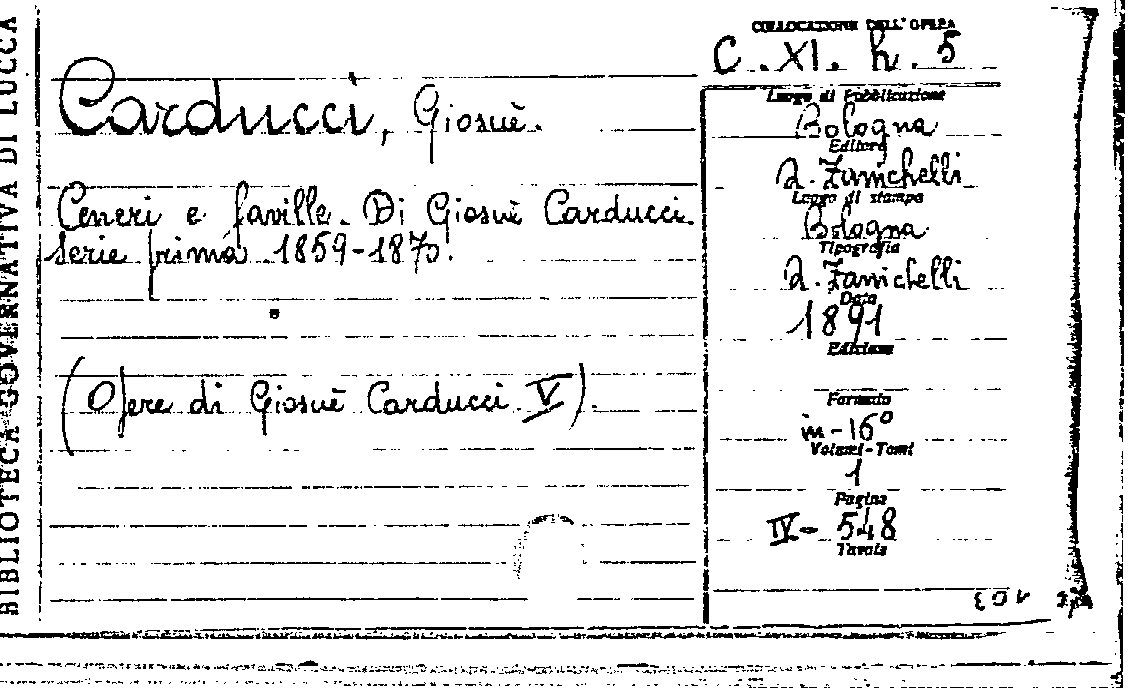 BIBLIOTECA GOVERNATIVA DI LUCCA
COLLOCAZIONE DELL'OPERA
C. XI. h. 5
Carducci, Giosuè.
Ceneri e faville. Di Giosuè Carducci.
serie prima 1859-1870.
(Opere di Giosuè Carducci V).
Luogo di Pubblicazione
Bologna
Editore
Zanichelli
Luogo di stampa
Bologna
Tipografia
Zanichelli
Data
1891
Edizione
Formato
in-16º
Volumi-Tomi
1
Pagine
IV- 548
Tavole